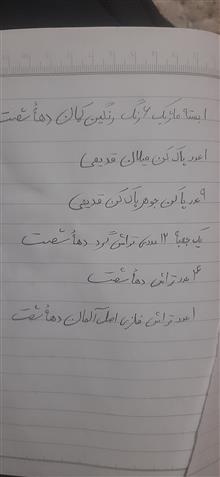 ۱ بسته ماژیک ۶ رنگ رنگین کمان دهه شصت
۱ عدد پاک کن میلان قدیمی
۹ عدد پاکن جوهر پاک کن قدیمی
یک جعبه ۱۲ عددی تراش گرد دهه شصت
۲۴ عدد تراش دهه شصت
۱ عدد تراش فلزی اصل آلمان دهه شصت